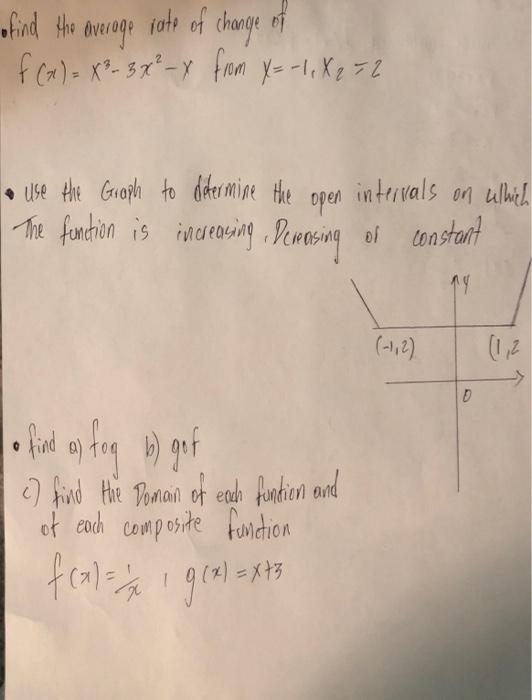 •find the average rate of change of
f(x) = x³- 3x² - x from x= -1, x₂ = 2
• use the Graph to determine the open intervals on which
The function is increasing, Dcreasing or constant
y
(-1,2) (1,2
0
• find a) fog b) gof
c) find the Domain of each funtion and
of each composite function
f(x) = 1/x , g(x) = x+3